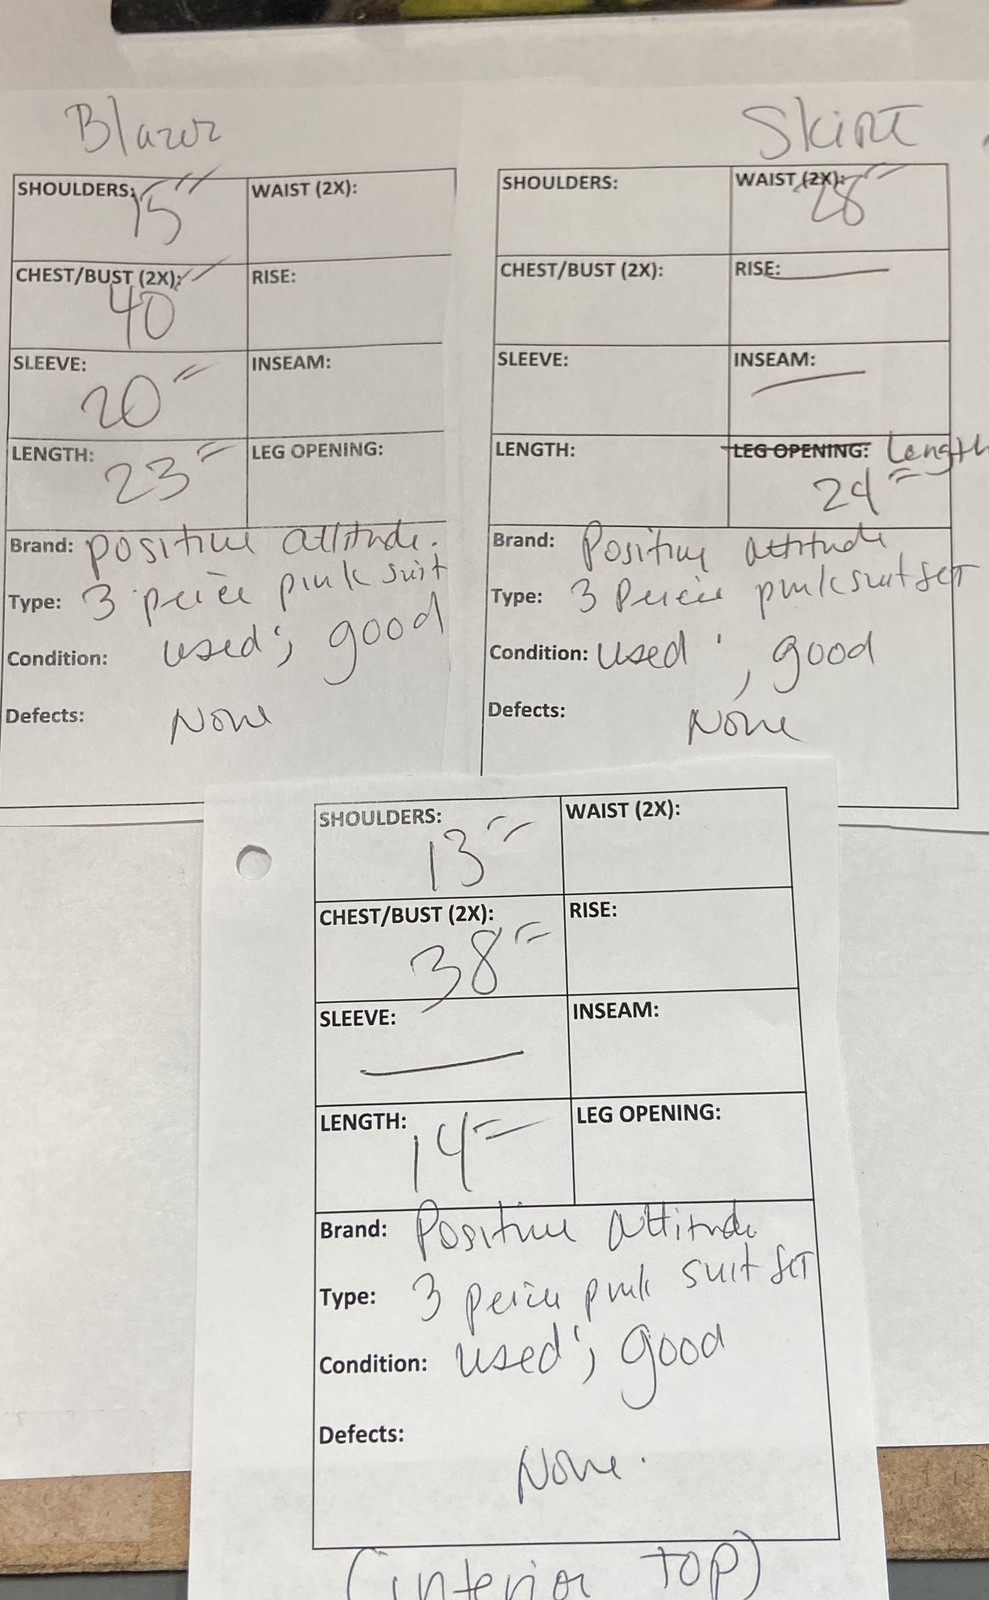 Blazer
SHOULDERS: 15"
WAIST (2X):
CHEST/BUST (2X): 40"
RISE:
SLEEVE: 20"
INSEAM:
LENGTH: 23"
LEG OPENING:
Brand: positive attitude.
Type: 3 peice pink suit
Condition: used; good
Defects: None
Skirt
SHOULDERS:
WAIST (2X): 28"
CHEST/BUST (2X):
RISE: —
SLEEVE:
INSEAM: —
LENGTH:
LEG OPENING: Length
24"
Brand: Positive attitude
Type: 3 Peice pink suit set
Condition: used; good
Defects: None
SHOULDERS: 13"
WAIST (2X):
CHEST/BUST (2X): 38"
RISE:
SLEEVE: —
INSEAM:
LENGTH: 14"
LEG OPENING:
Brand: Positive attitude
Type: 3 peice pink suit set
Condition: used; good
Defects: None.
(interior top)